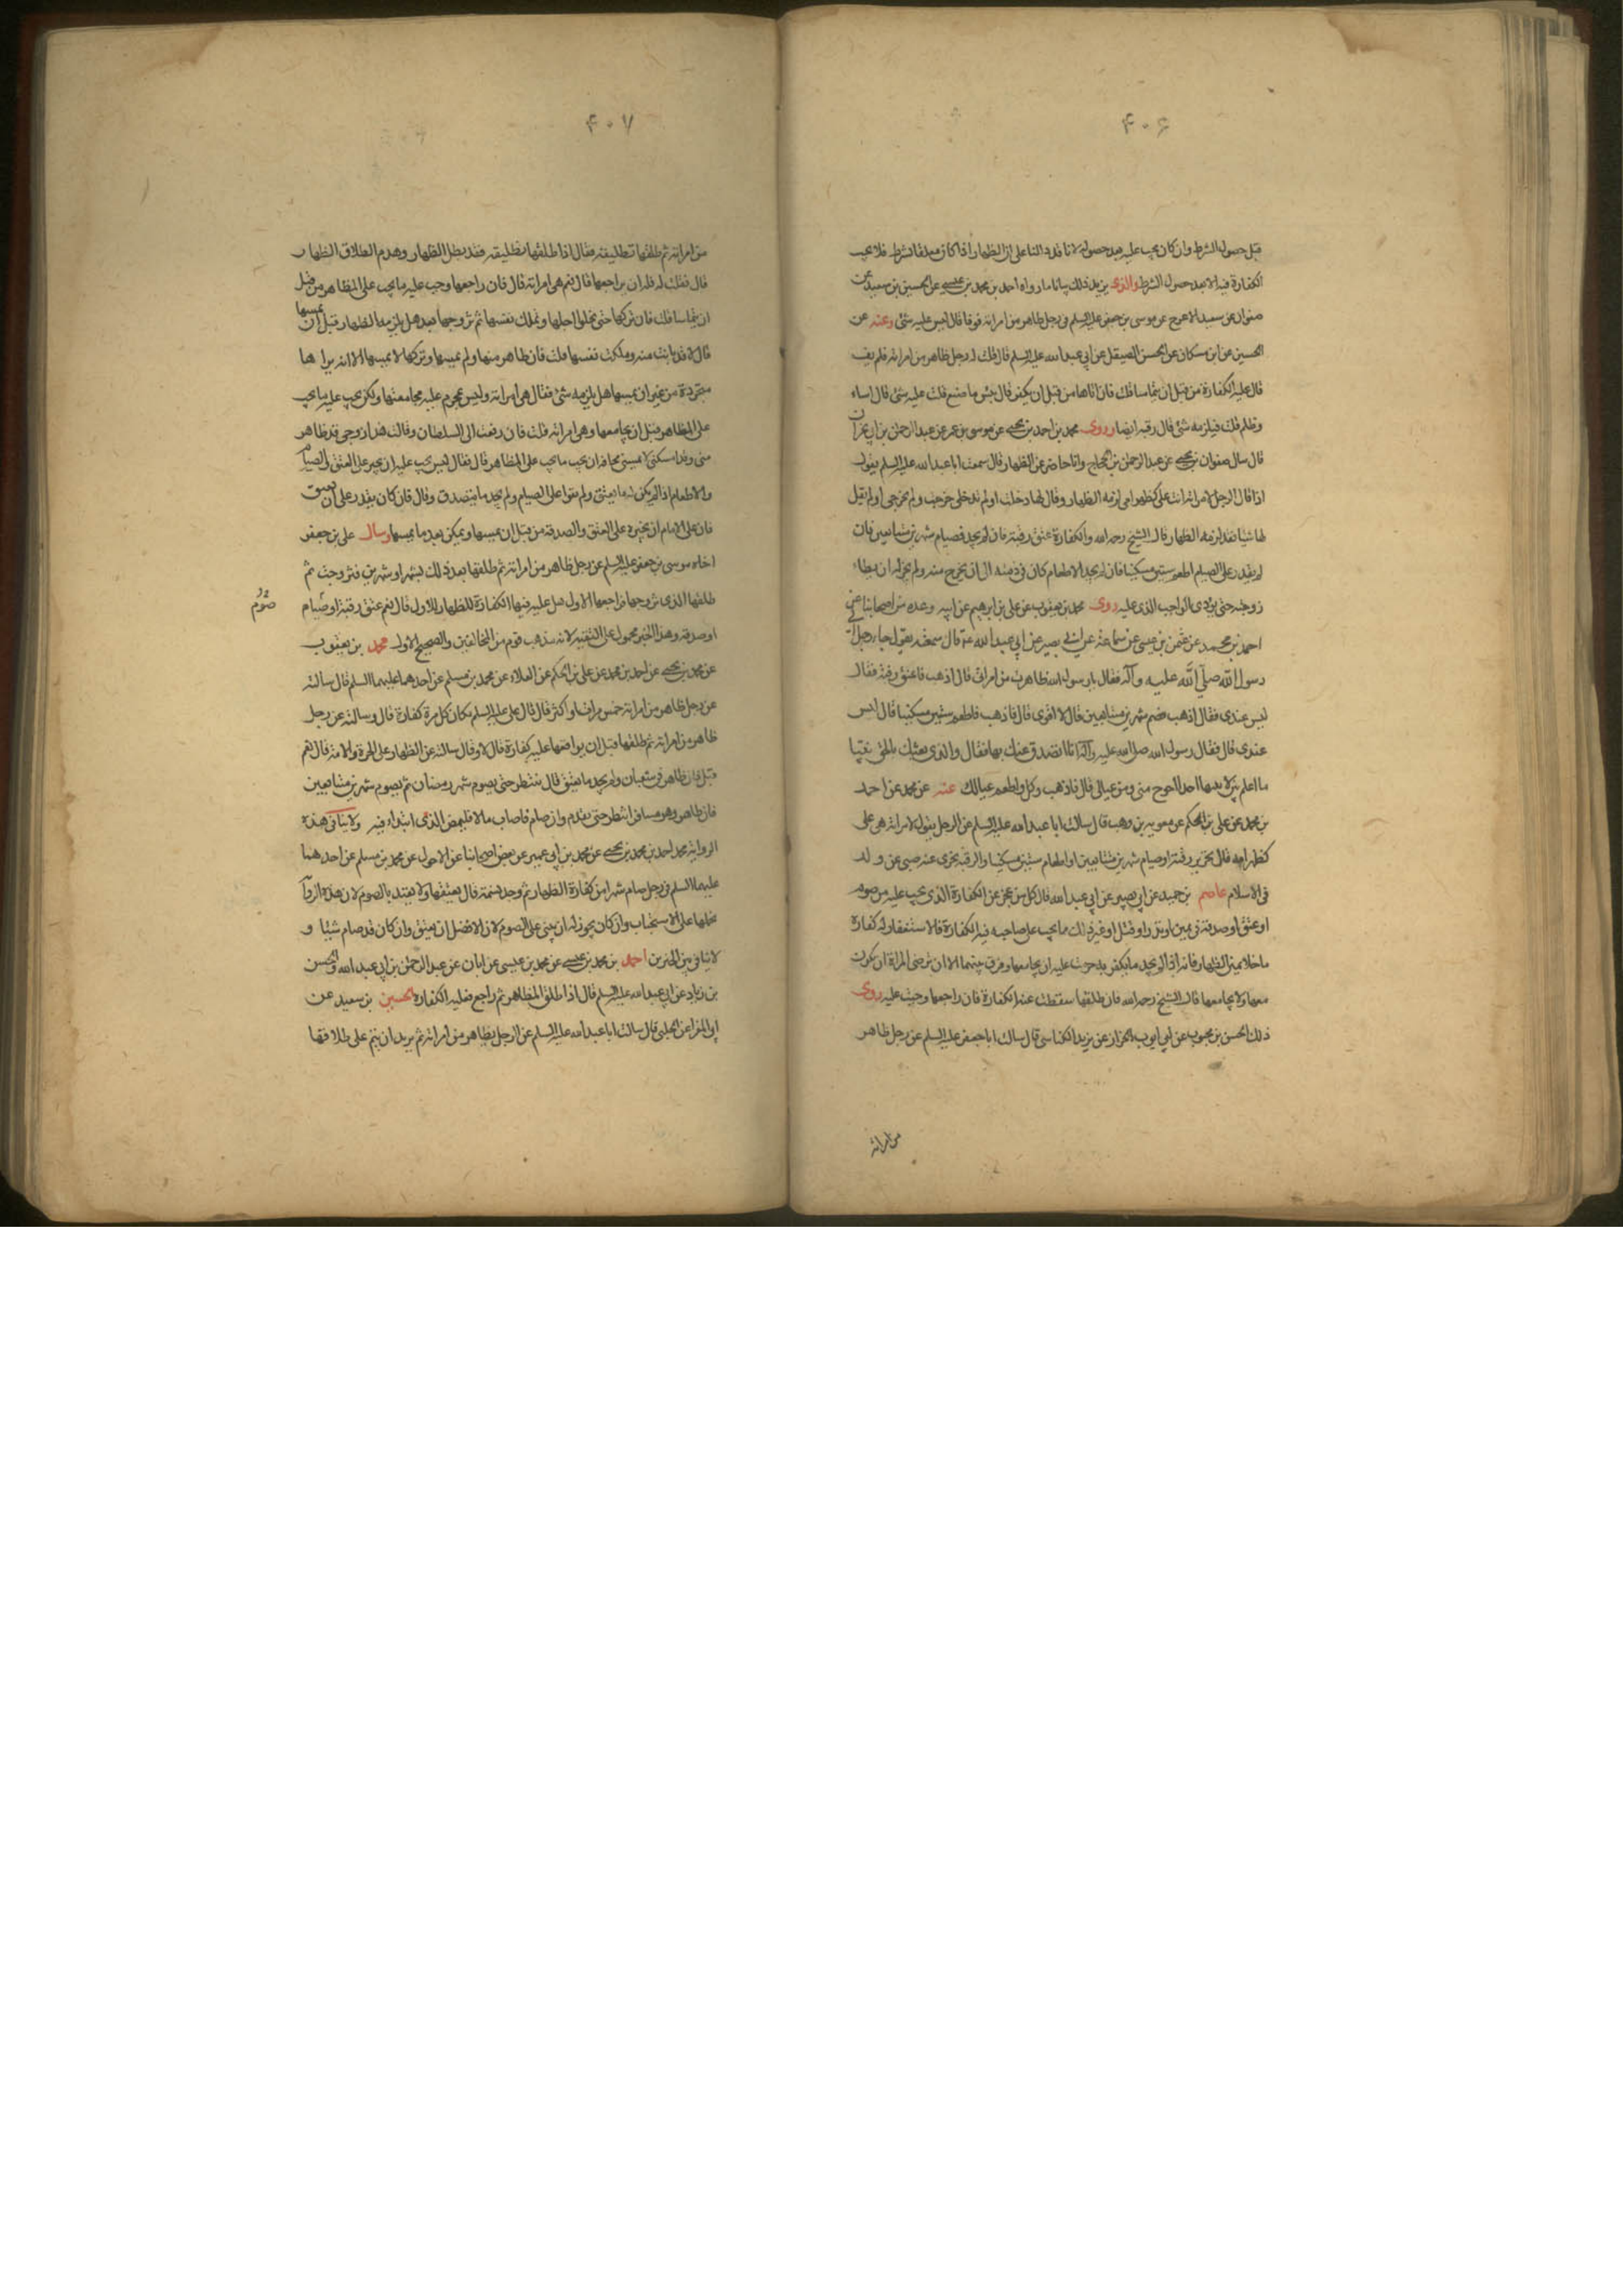 ۴۰۶
قبل حصول الشرط وان كان يجب عليه بعد حصوله لانا قد دللنا على ان الظهار اذا كان معلقا بشرط فلا يجب
الكفارة فيه الا بعد حصول الشرط والذي يزيد ذلك بيانا ما رواه احمد بن محمد بن عيسى عن الحسين بن سعيد عن
صفوان عن سعيد الاعرج عن موسى بن جعفر عليه السلم في رجل ظاهر من امراته فوفا قال ليس عليه شئ وعنه عن
الحسين عن ابن مسكان عن الحسن الصيقل عن ابي عبد الله عليه السلم قال قلت له رجل ظاهر من امراته فلم يف
قال عليه الكفارة من قبل ان يتماسا قلت فان اتاها من قبل ان يكفر قال بئس ما صنع قلت عليه شئ قال اساء
وظلم قلت فيلزمه شئ قال رقبة ايضا وروى محمد بن احمد بن يحيى عن موسى بن عمر عن عبد الرحمن بن ابي نجران
قال سال صفوان بن يحيى عن عبد الرحمن بن الحجاج وانا حاضر عن الظهار قال سمعت ابا عبد الله عليه السلم يقول
اذا قال الرجل لامراته انت على كظهر امي لزمه الظهار وقال لها دخلت او لم تدخلي خرجت ولم تخرجي او لم يقل
لها شيا فقد لزمه الظهار قال الشيخ رحمه الله والكفارة عتق رقبة فان لم يجد فصيام شهرين متتابعين فان
لم يقدر على الصيام اطعم ستين مسكينا فان لم يجد الاطعام كان في ذمته الى ان يخرج منه ولم يجز له ان يطاء
زوجته حتى يؤدى الواجب الذى عليه روى محمد بن يعقوب عن علي بن ابراهيم عن ابيه وعدة من اصحابنا عن
احمد بن محمد عن عثمن بن عيسى عن سماعة عن ابي بصير عن ابي عبد الله ع قال سمعته يقول جاء رجل الى
رسول الله صلى الله عليه وآله فقال يا رسول الله ظاهرت من امراتي قال اذهب فاعتق رقبة فقال
ليس عندى فقال اذهب فصم شهرين متتابعين قال لا اقوى قال فاذهب فاطعم ستين مسكينا قال ليس
عندى قال فقال رسول الله صلى الله عليه وآله انا اتصدق عنك بها فقال والذى بعثك بالحق نبيا
ما اعلم بين لابتيها احدا احوج مني ومن عيالي قال فاذهب وكل واطعم عيالك عنه عن محمد عن احمد
بن محمد عن علي بن الحكم عن معوية بن وهب قال سالت ابا عبد الله عليه السلم عن الرجل يقول لامراته هي على
كظهر امه قال تحرير رقبة او صيام شهرين متتابعين او اطعام ستين مسكينا والرقبة يجزى عنه صبي عن ولد
في الاسلام عاصم بن حميد عن ابي بصير عن ابي عبد الله قال كل من عجز عن الكفارة الذى يجب عليه من صوم
او عتق او صدقة في يمين او نذر او قتل او غير ذلك مما يجب على صاحبه فيه الكفارة فالاستغفار له كفارة
ما خلا يمين الظهار فانه اذا لم يجد ما يكفر به حرمت عليه ان يجامعها وفرق بينهما الا ان ترضى المراة ان يكون
معها ولا يجامعها قال الشيخ رحمه الله فان طلقها سقطت عنه الكفارة فان راجعها وجبت عليه روى
ذلك الحسن بن محبوب عن ابي ايوب الخزاز عن يزيد الكناسي قال سالت ابا جعفر عليه السلم عن رجل ظاهر
من امراته
۴۰۷
من امراته ثم طلقها تطليقة فقال اذا طلقها تطليقة فقد بطل الظهار وهدم الطلاق الظهار
قال فقلت له فله ان يراجعها قال نعم هي امراته قال فان راجعها وجب عليه ما يجب على المظاهر من قبل
ان يتماسا قلت فان تركها حتى يخلوا اجلها وتملك نفسها ثم تزوجها بعد هل يلزمه الظهار قبل ان يمسها
قال لا قد بانت منه وملكت نفسها قلت فان ظاهر منها ولم يمسها وتركها لا يمسها الا انه يراها
متجردة من غير ان يمسها هل يلزمه شئ فقال هي امراته وليس بمحرم عليه مجامعتها ولكن يجب عليه ما يجب
على المظاهر قبل ان يجامعها وهي امراته قلت فان رفعته الى السلطان وقالت هذا زوجى قد ظاهر
منى وقد امسكنى لا يمسني مخافة ان يجب ما يجب على المظاهر قال فقال ليس يجب عليه ان يجبر على العتق والصيام
والاطعام اذا لم يكن له ما يعتق ولم يقوا على الصيام ولم يجد ما يتصدق وقال فان كان يقدر على ان يعتق
فان على الامام ان يجبره على العتق والصدقة من قبل ان يمسها ويمكن بعد ما يمسها وسال علي بن جعفر
اخاه موسى بن جعفر عليه السلم عن رجل ظاهر من امراته ثم طلقها بعد ذلك بشهر او شهرين فتزوجت ثم
طلقها الذى تزوجها فراجعها الاول هل عليه فيها الكفارة للظهار الاول قال نعم عتق رقبة او صيام
صوم
او صدقة وهذا الخبر محمول على التقية لانه مذهب قوم من المخالفين والصحيح الاول محمد بن يعقوب
عن محمد بن يحيى عن احمد بن محمد عن علي بن الحكم عن العلاء عن محمد بن مسلم عن احدهما عليهما السلم قال سالته
عن رجل ظاهر من امراته خمس مرات او اكثر قال قال على عليه السلم مكان كل مرة كفارة قال وسالته عن رجل
ظاهر من امراته ثم طلقها قبل ان يواقعها عليه كفارة قال لا وقال سالته عن الظهار على الحرة والامة قال نعم
قيل فان ظاهر في شعبان ولم يجد ما يعتق قال ينتظر حتى يصوم شهر رمضان ثم يصوم شهرين متتابعين
فان ظاهر وهو مسافر انتظر حتى يقدم وان صام فاصاب مالا فليمض الذى ابتداء فيه ولا ينافي هذه
الرواية محمد احمد بن محمد بن يحيى عن محمد بن ابي عمير عن بعض اصحابنا عن الاحول عن محمد بن مسلم عن احدهما
عليهما السلم في رجل صام شهرا من كفارة الظهار ثم وجد نسمة قال يعتقها ولا يعتد بالصوم لان هذه الرواية
نحملها على الاستحباب وان كان يجوز له ان يبني على الصوم لان الافضل ان يعتق وان كان قد صام شيئا و
لا تنافي بين الخبرين احمد بن محمد بن عيسى عن محمد بن عيسى عن ابان عن عبد الرحمن بن ابي عبد الله والحسن
بن زياد عن ابي عبد الله عليه السلم قال اذا طلق المظاهر ثم راجع فعليه الكفارة الحسين بن سعيد عن
ابي المغرا عن الحلبي قال سالت ابا عبد الله عليه السلم عن الرجل يظاهر من امراته ثم يريد ان يتم على طلاقها